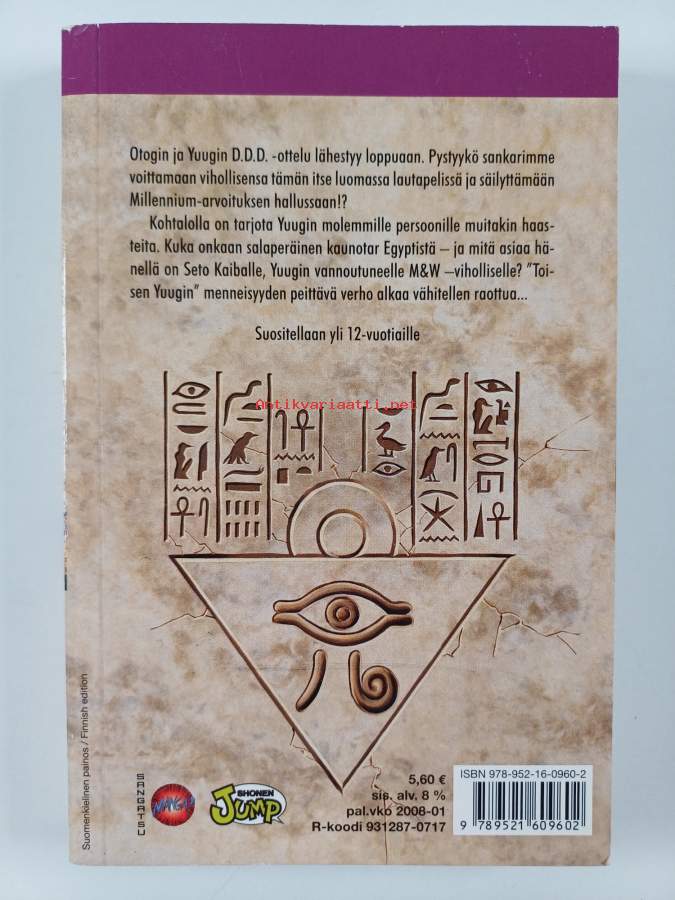 Otogin ja Yuugin D.D.D. -ottelu lähestyy loppuaan. Pystyykö sankarimme
voittamaan vihollisensa tämän itse luomassa lautapelissä ja säilyttämään
Millennium-arvoituksen hallussaan!?
Kohtalolla on tarjota Yuugin molemmille persoonille muitakin haas-
teita. Kuka onkaan salaperäinen kaunotar Egyptistä – ja mitä asiaa hä-
nellä on Seto Kaiballe, Yuugin vannoutuneelle M&W –viholliselle? ”Toi-
sen Yuugin” menneisyyden peittävä verho alkaa vähitellen raottua...
Suositellaan yli 12-vuotiaille
Antikvariaatti.net
Suomenkielinen painos / Finnish edition
SANGATSU
MANGA!
SHONEN
JUMP
5,60 €
sis. alv. 8 %
pal.vko 2008-01
R-koodi 931287-0717
ISBN 978-952-16-0960-2
9 789521 609602